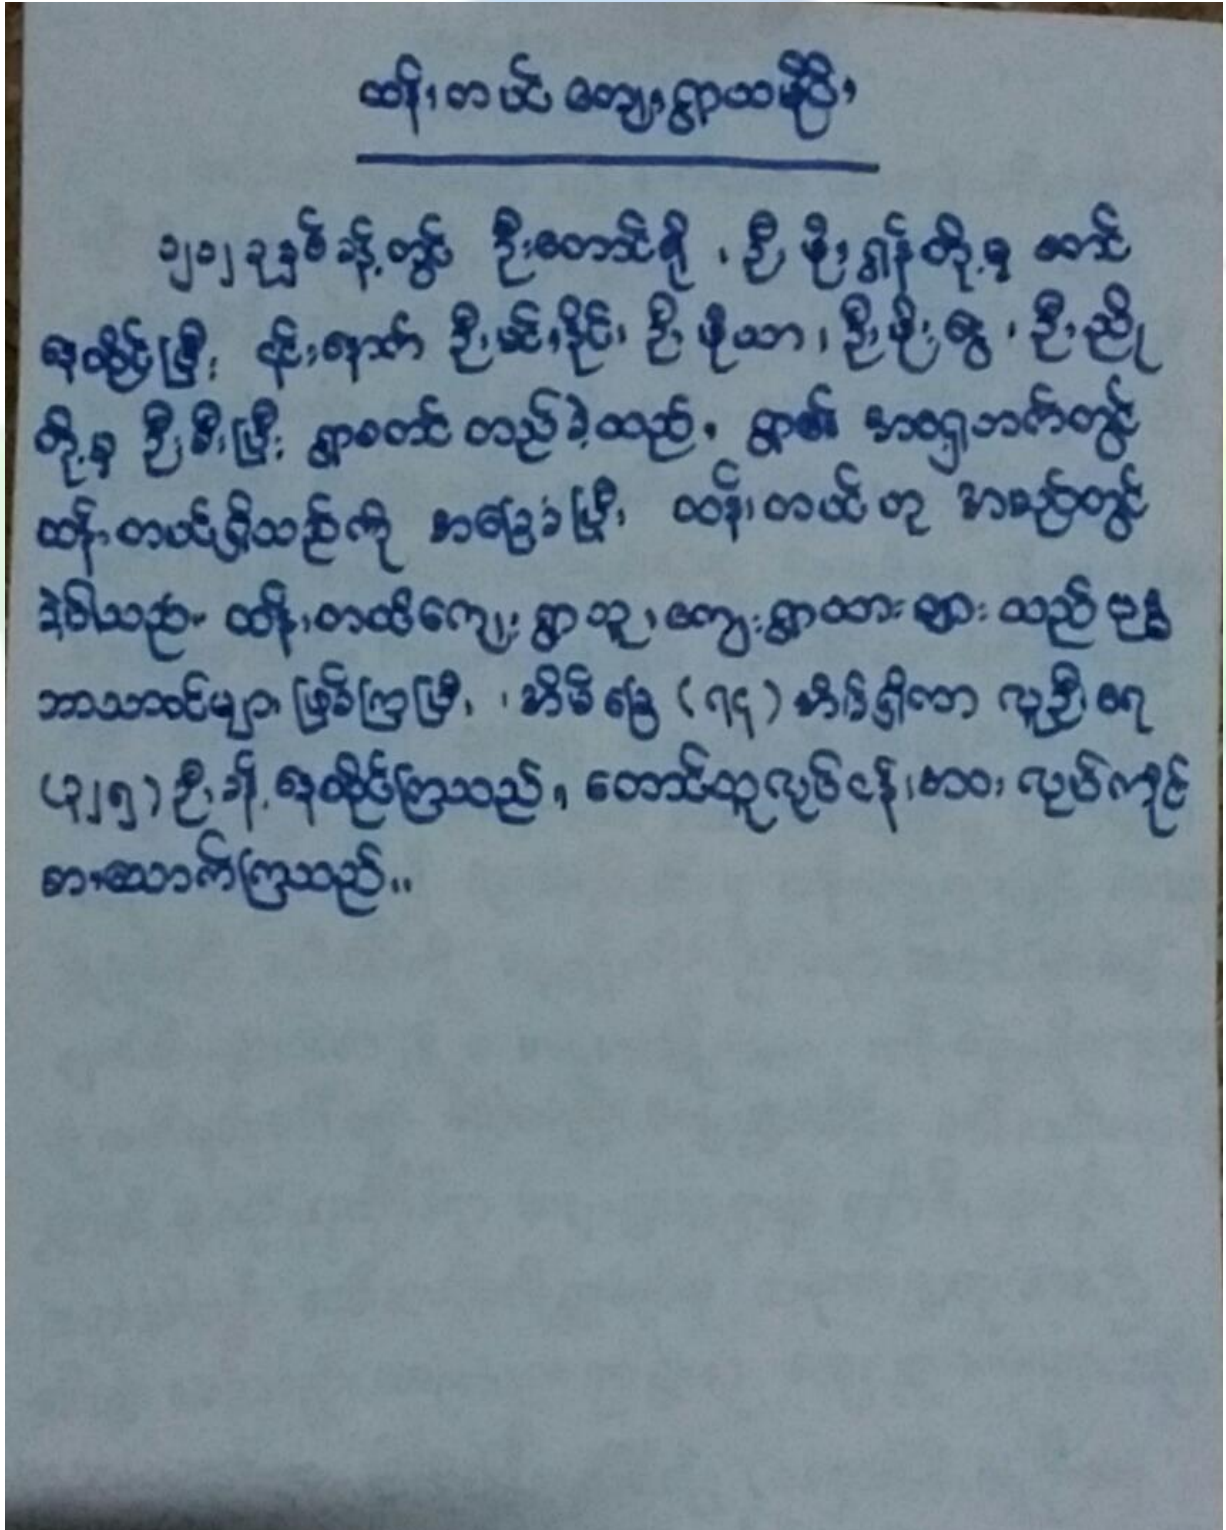 ထန်းတပင် ကျေးရွာသမိုင်း
၁၂၁၂ ခုနှစ်ခန့်တွင် ဦးတောင်စို ၊ ဦးဖိုးရွှန်တို့မှ စတင်
နေထိုင်ပြီး ၎င်းနောက် ဦးမင်းခိုင်၊ ဦးဖိုသာ ၊ ဦးဖိုးငွေ ၊ ဦးညို
တို့မှ ဦးစီးပြီး ရွာစတင်တည်ခဲ့သည်။ ရွာ၏ အရှေ့ဘက်တွင်
ထန်းတပင်ရှိသည်ကို အခြေခံပြီး ထန်းတပင်ဟု အမည်တွင်
ခဲ့ပါသည်။ ထန်းတပင်ကျေးရွာသူ၊ ကျေးရွာသားများသည် ဗုဒ္ဓ
ဘာသာဝင်များ ဖြစ်ကြပြီး ၊ အိမ်ခြေ (၇၄) အိမ်ရှိကာ လူဦးရေ
(၃၂၅) ဦးခန့် နေထိုင်ကြသည်။ တောင်သူလုပ်ငန်းအား လုပ်ကိုင်
စားသောက်ကြသည်။